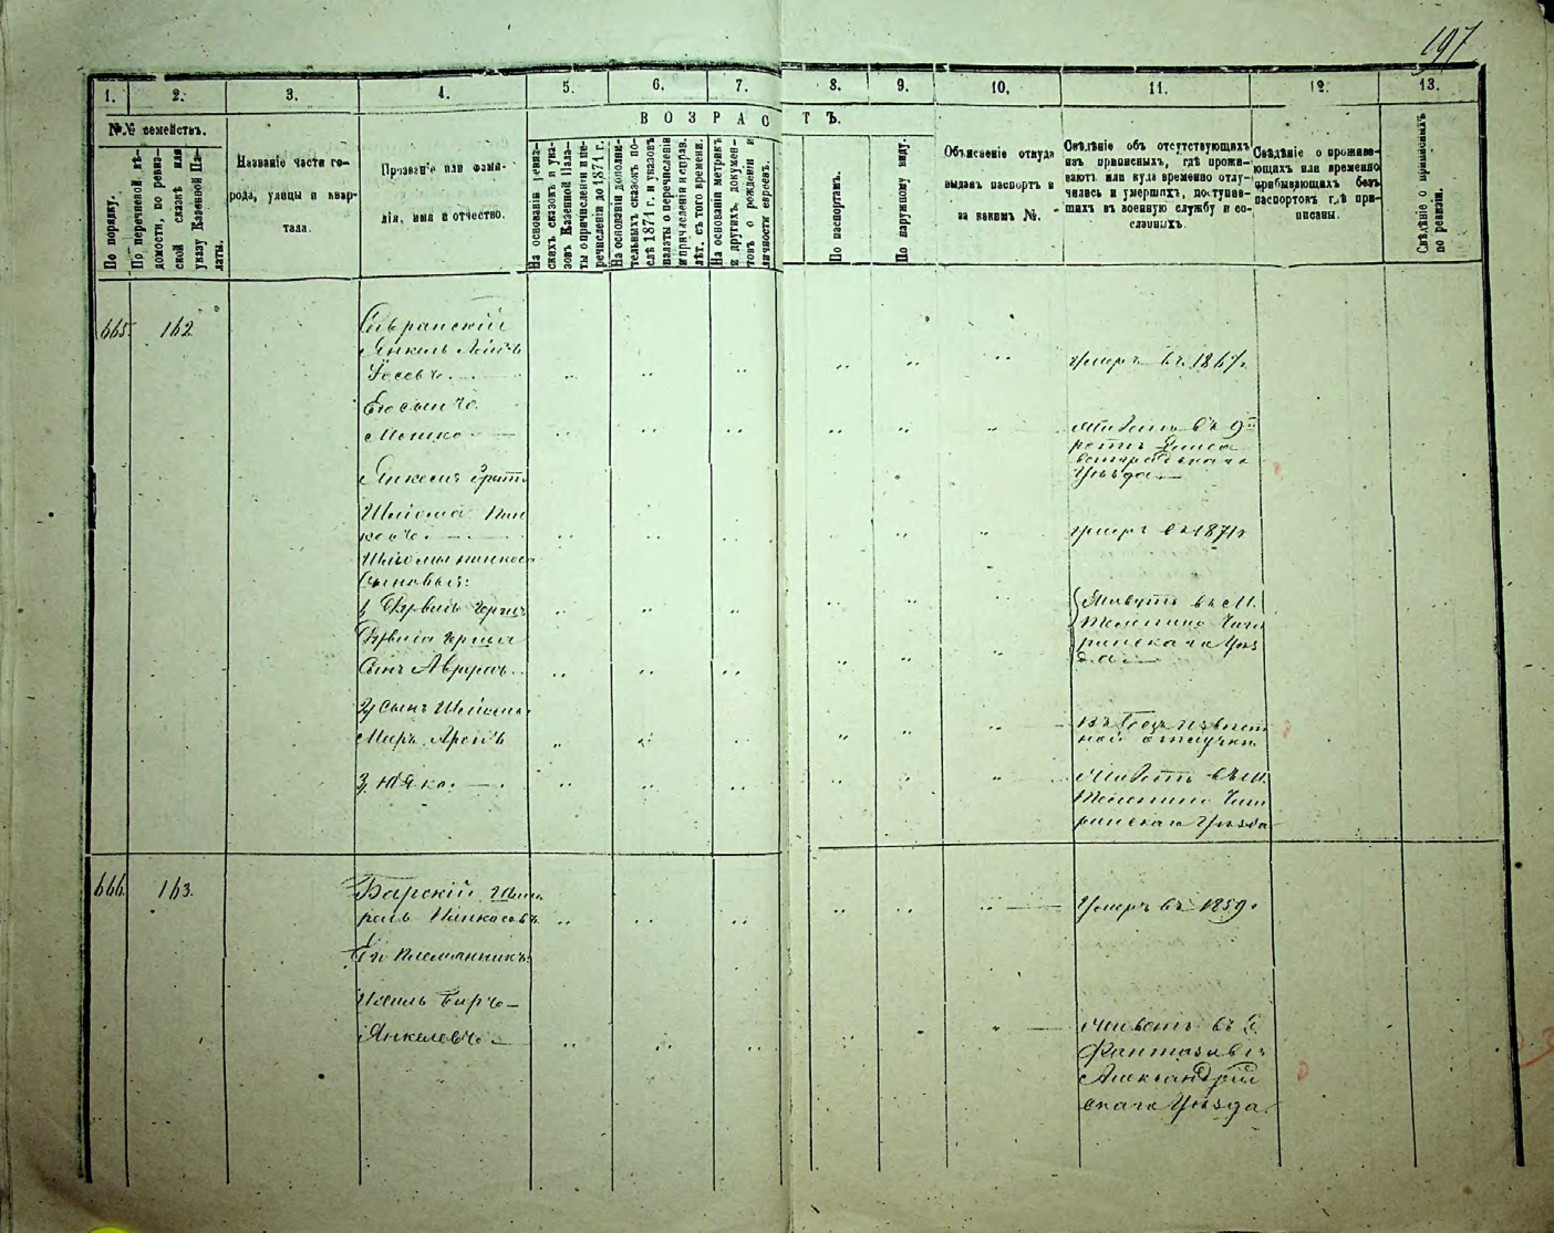 197
1. 2. 3. 4. 5. 6. 7. 8. 9. 10. 11. 12. 13.
№№ семействъ.
По порядку.
По перечневой вѣ-
домости, по ревиз-
ской сказкѣ или
указу Казенной Па-
латы.
Названіе части го-
рода, улицы и квар-
тала.
Прозваніе или фами-
лія, имя и отчество.
ВОЗРАСТЪ.
На основаніи ревиз-
скихъ сказокъ и ука-
зовъ Казенной Пала-
ты о причисленіи и пе-
речисленіи до 1874 г.
На основаніи дополни-
тельныхъ сказокъ по-
слѣ 1874 г. и указовъ
палаты о перечисленіи
и причисленіи и справ.
лѣт. съ того времени.
На основаніи метрикъ
и другихъ докумен-
товъ о рожденіи и
личности евреевъ.
По паспортамъ.
По наружному виду.
Объясненіе откуда
выданъ паспортъ и
за какимъ №.
Свѣдѣніе объ отсутствующихъ
изъ приписныхъ, гдѣ прожи-
ваютъ или куда временно отлу-
чились и умершихъ, поступив-
шихъ въ военную службу и со-
сланныхъ.
Свѣдѣніе о прожива-
ющихъ или временно
прибывающихъ безъ
паспортовъ гдѣ при-
писаны.
Свѣдѣніе о приписныхъ
по ревизіи.
665. 162.
Савранскій
Янкель Лейбъ
Іосевъ.
Умеръ въ 1867.
Его сынъ
Мошко
Живетъ въ
ротѣ Елиса
ветградскаго
Уѣзда.
Янкеля братъ
Шліома Пин
косъ
умеръ въ 1871г
Шліомы Пинкоса
Сыновья:
1, Дувидъ Герш
Дувида Герша
Сынъ Авррамъ
Живутъ въ М.
Телепино Чиги
ринскаго Уѣз
да.
2, Сынъ Шліомы
Меръ Аронъ
въ безъизвѣст
ной отлучки.
3, Юдко.
Живетъ въ М.
Телепино Чиги
ринскаго Уѣзда
666. 163.
Барскій
Пинкосовъ
Умеръ въ 1859.
Его племянникъ:
Янкелевъ
Живетъ въ
Александрій
скаго Уѣзда.